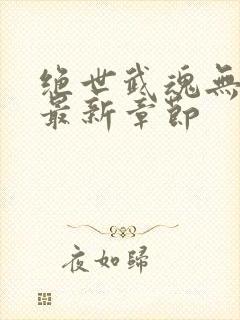 绝世武魂無
最新章節
夜如歸